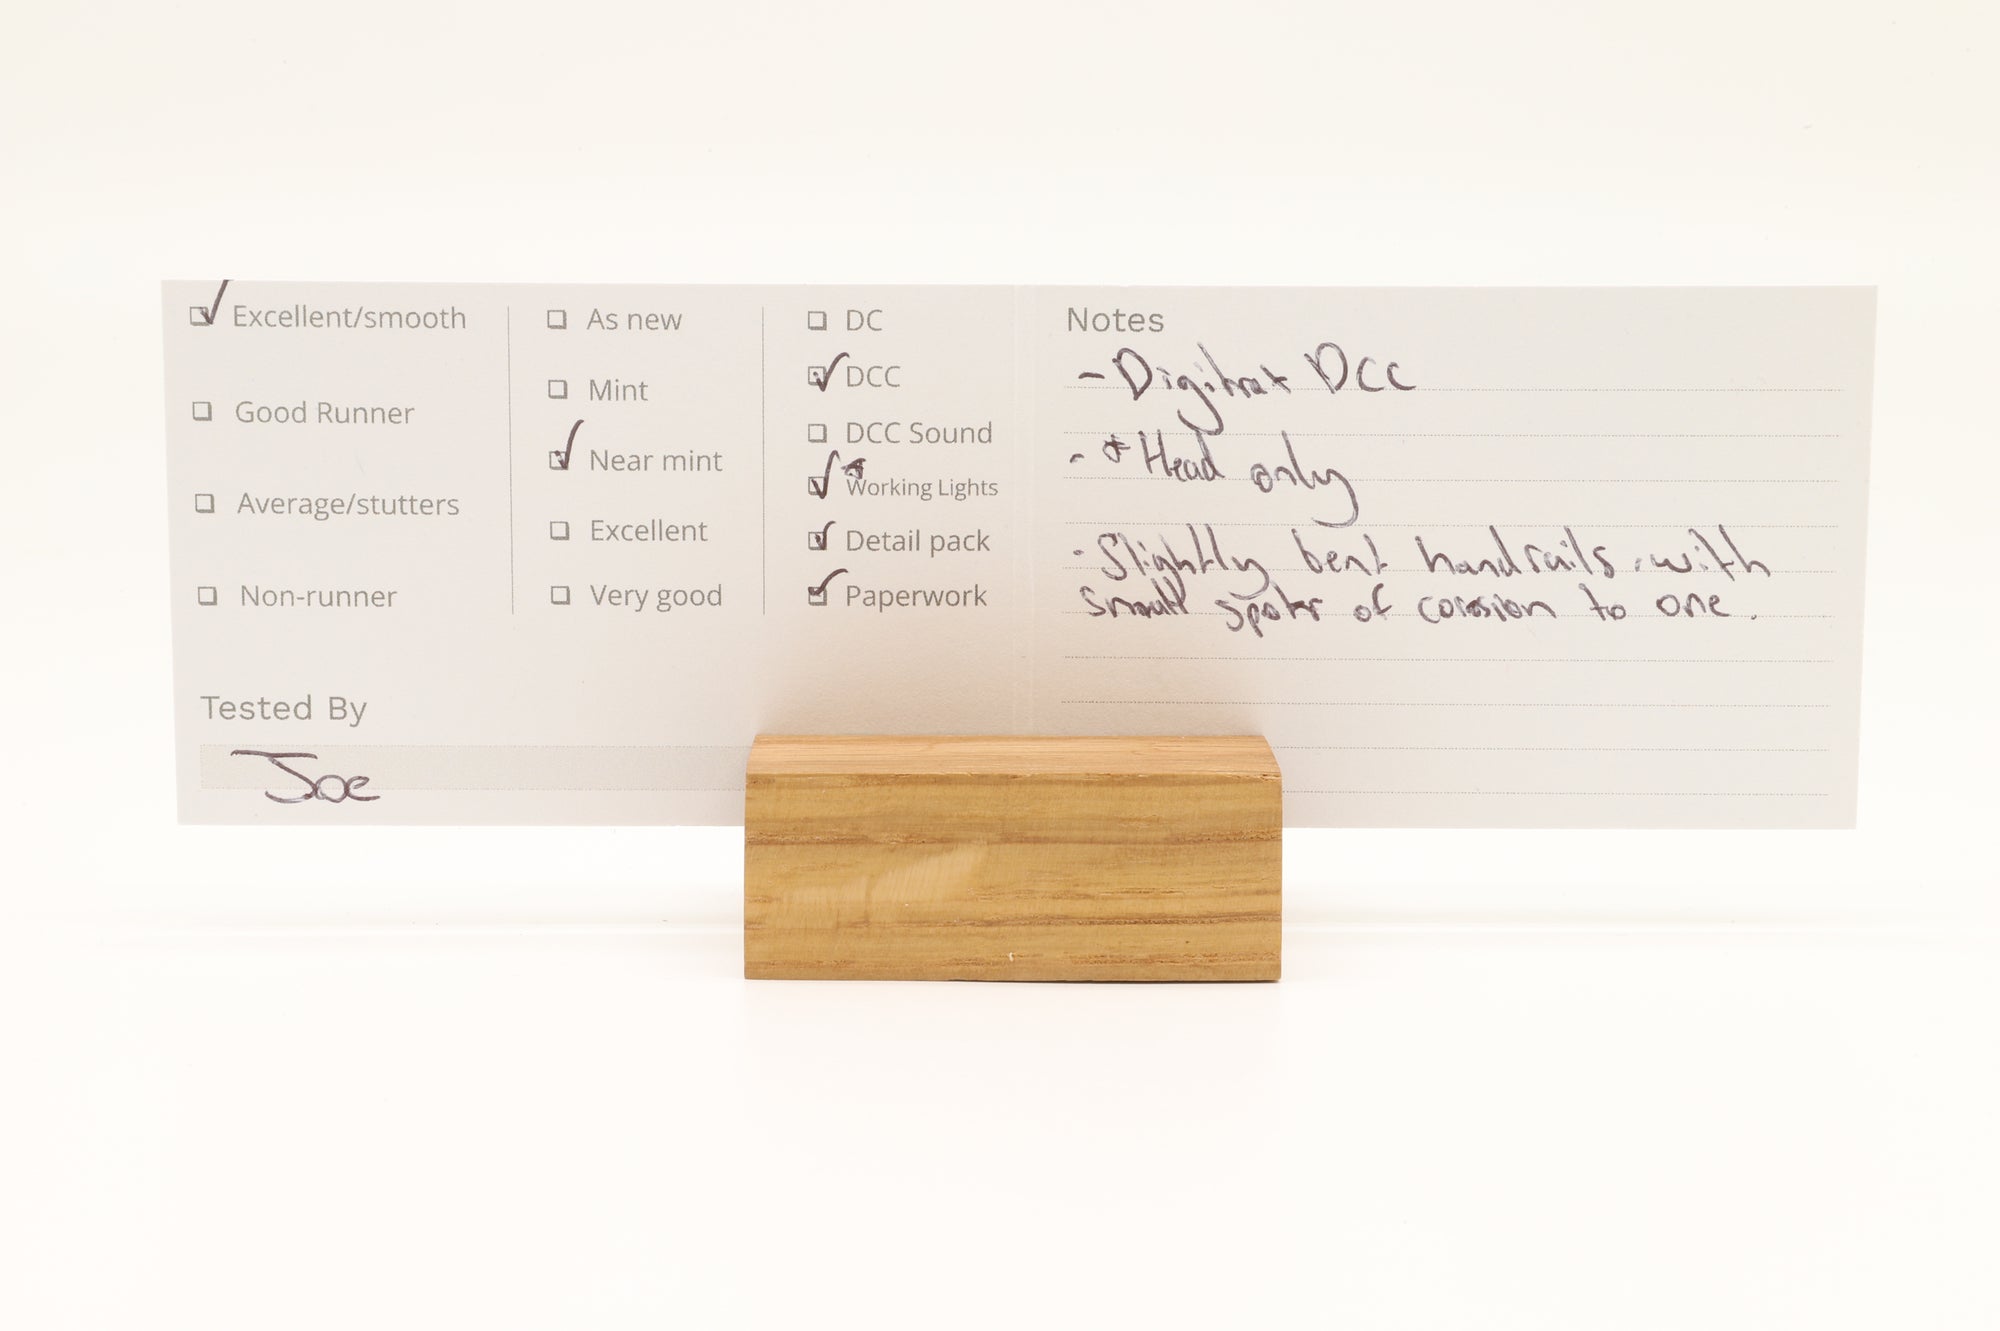 Excellent/smooth
Good Runner
Average/stutters
Non-runner
As new
Mint
Near mint
Excellent
Very good
DC
DCC
DCC Sound
*
Working Lights
Detail pack
Paperwork
Tested By
Joe
Notes
- Digitrax DCC
- * Head only
- Slightly bent handrails. with
small spots of corosion to one.